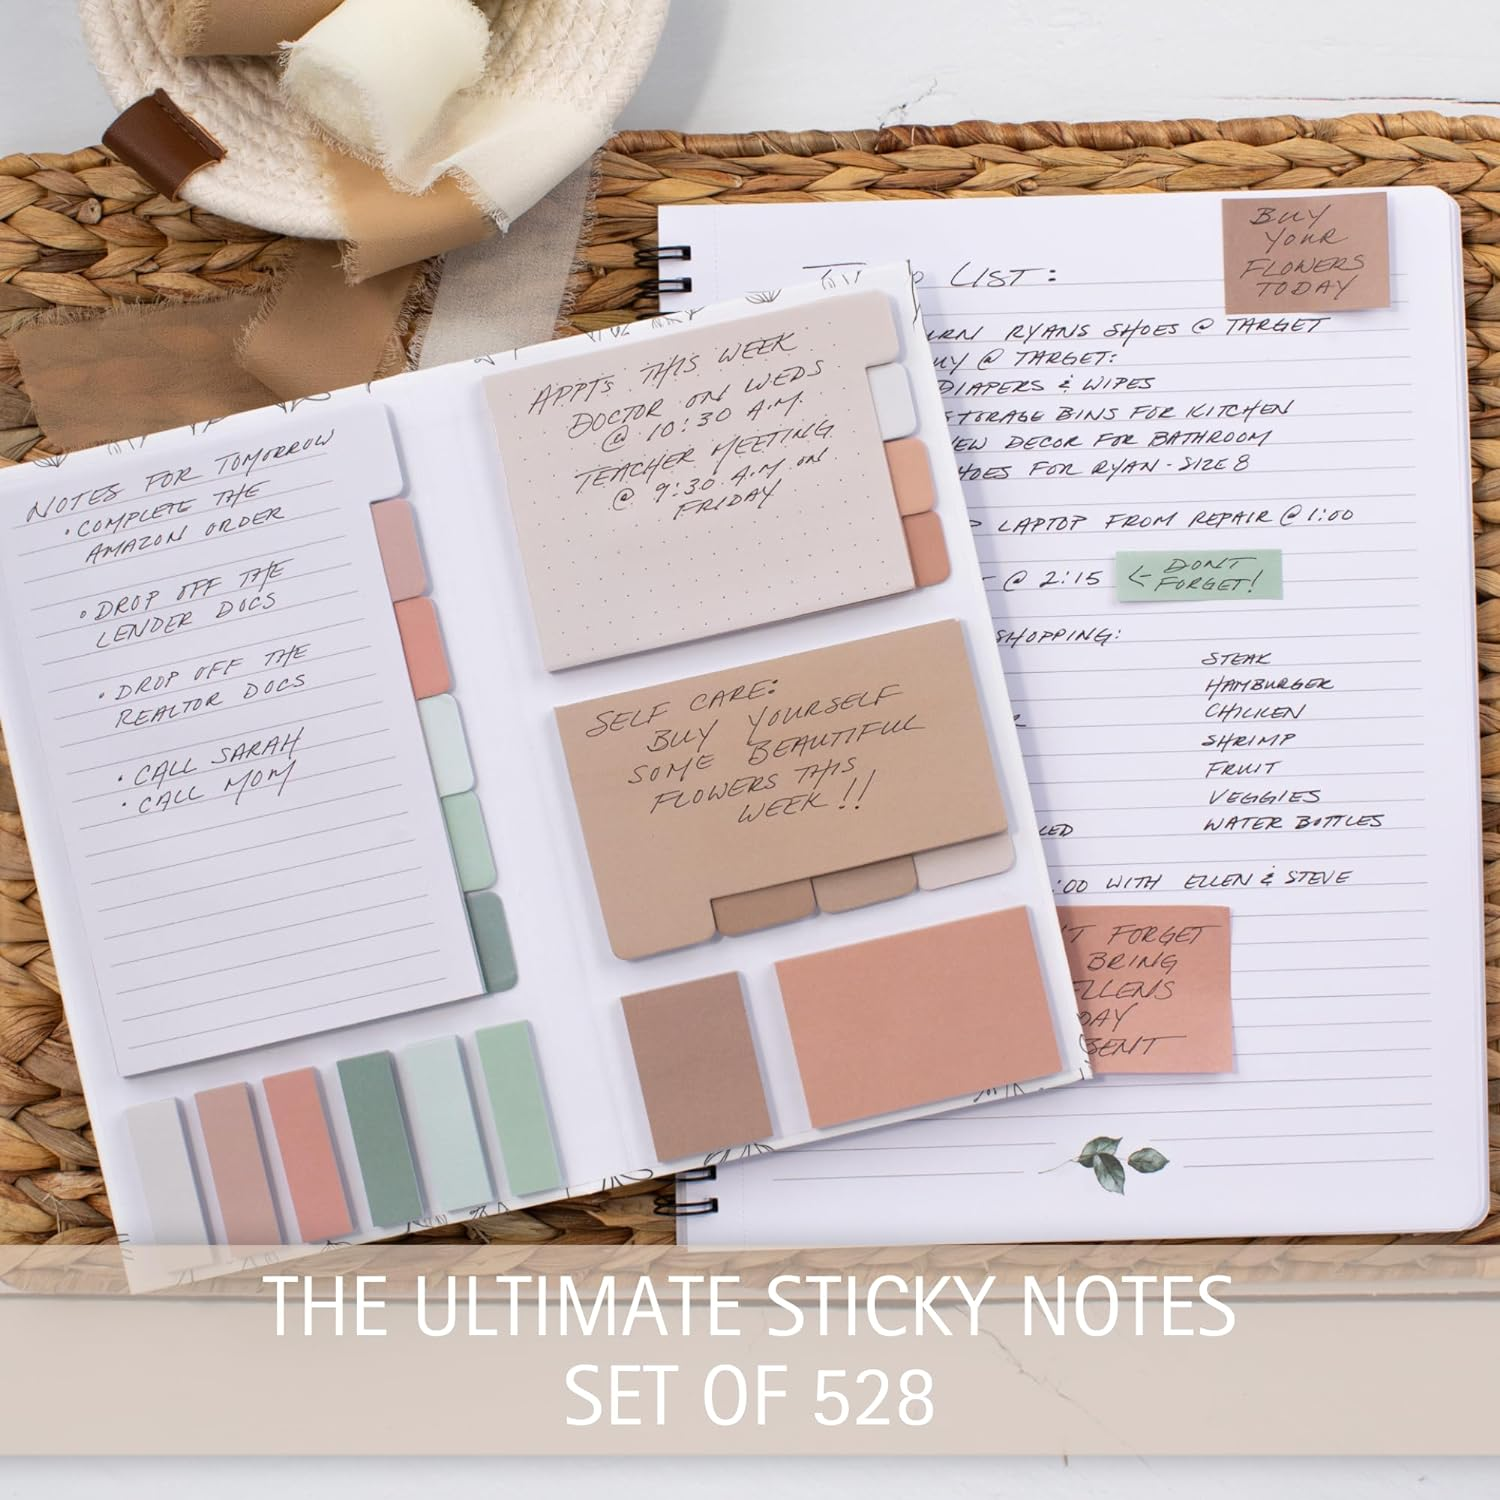 NOTES FOR TOMORROW
• COMPLETE THE
AMAZON ORDER
• DROP OFF THE
LENDER DOCS
• DROP OFF THE
REALTOR DOCS
• CALL SARAH
• CALL MOM
APPTS THIS WEEK
DOCTOR ON WEDS
@ 10:30 A.M.
TEACHER MEETING
@ 9:30 A.M ON
FRIDAY
SELF CARE:
BUY YOURSELF
SOME BEAUTIFUL
FLOWERS THIS
WEEK!!
LIST:
BUY
YOUR
FLOWERS
TODAY
RYANS SHOES @ TARGET
@ TARGET:
DIAPERS & WIPES
STORAGE BINS FOR KITCHEN
DECOR FOR BATHROOM
FOR RYAN - SIZE 8
LAPTOP FROM REPAIR @ 1:00
@ 2:15
← DONT
FORGET!
SHOPPING:
STEAK
HAMBURGER
CHICKEN
SHRIMP
FRUIT
VEGGIES
WATER BOTTLES
:00 WITH ELLEN & STEVE
FORGET
BRING
ELLENS
THE ULTIMATE STICKY NOTES
SET OF 528